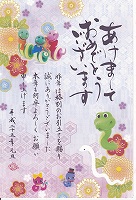 あけまして
おめでとう
ございます
昨年は格別のお引立てを賜り
誠にありがとうございました
本年も何卒よろしくお願い
申し上げます
平成二十五年 元旦